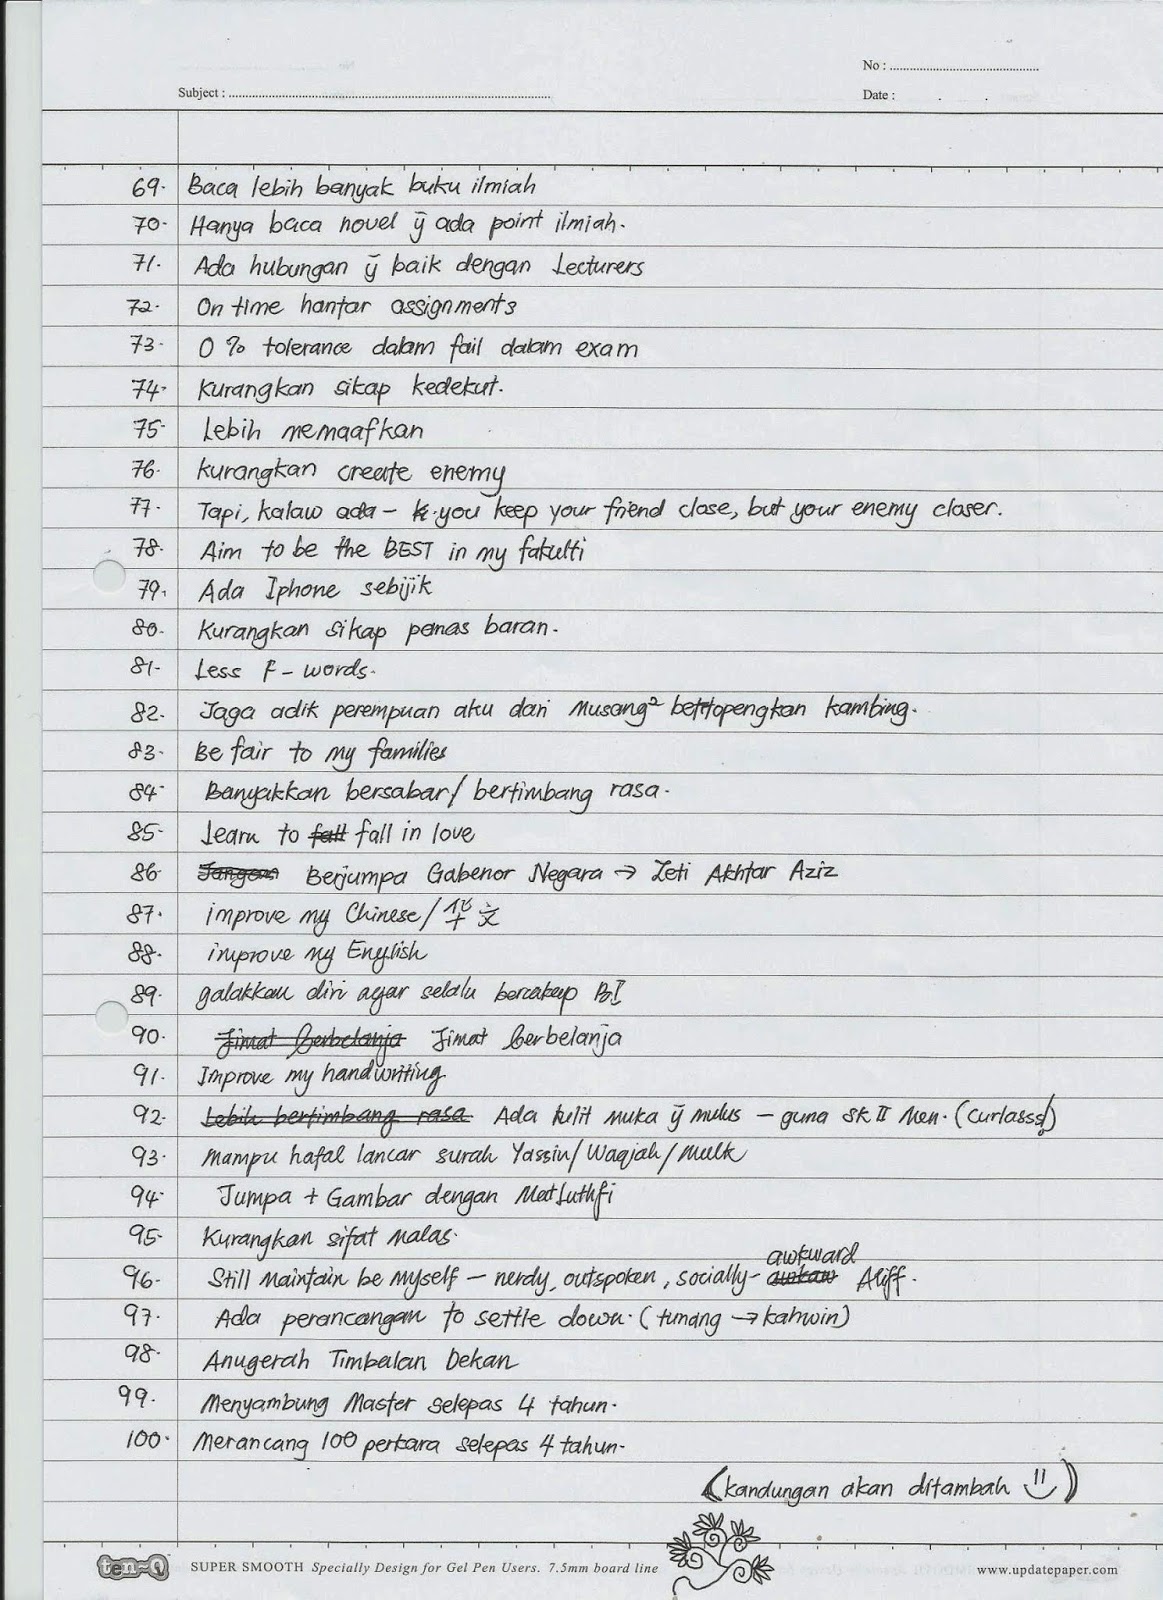 No : ..........
Subject : ..........
Date : . .
69. Baca lebih banyak buku ilmiah
70. Hanya baca novel ȳ ada point ilmiah.
71. Ada hubungan ȳ baik dengan Lecturers
72. On time hantar assignments
73. 0 % tolerance dalam fail dalam exam
74. Kurangkan sikap kedekut.
75. Lebih memaafkan
76. kurangkan create enemy
77. Tapi, kalaw ada – you keep your friend close, but your enemy closer.
78. Aim to be the BEST in my fakulti
79. Ada Iphone sebijik
80. Kurangkan sikap panas baran.
81. Less F – words.
82. Jaga adik perempuan aku dari Musang² bertopengkan kambing.
83. Be fair to my families
84. Banyakkan bersabar/ bertimbang rasa.
85. Learn to fall fall in love
86. Jangan Berjumpa Gabenor Negara → Zeti Akhtar Aziz
87. improve my Chinese/ 华文
88. improve my English
89. galakkan diri agar selalu bercakap BI
90. Jimat Berbelanja Jimat Berbelanja
91. Improve my handwriting
92. Lebih bertimbang rasa Ada kulit muka ȳ mulus – guna SK II Men. (curlasss!)
93. Mampu hafal lancar surah Yassin/ Waqiah/ Mulk
94. Jumpa + Gambar dengan MatLuthfi
95. Kurangkan sifat malas.
96. Still Maintain be Myself – nerdy, outspoken, socially- awkward Aliff.
97. Ada perancangan to settle down. (tunang → kahwin)
98. Anugerah Timbalan Dekan
99. Menyambung Master selepas 4 tahun.
100. Merancang 100 perkara selepas 4 tahun.
(kandungan akan ditambah)
ten-Q SUPER SMOOTH Specially Design for Gel Pen Users. 7.5mm board line www.updatepaper.com